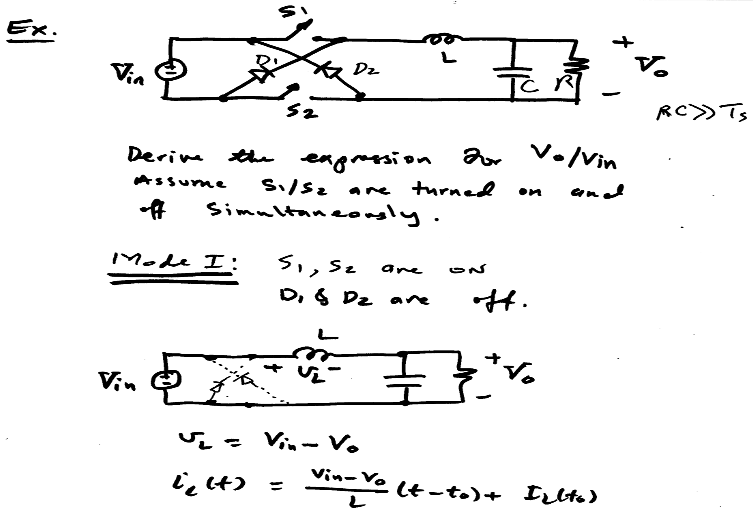 Ex.
S1
Vin
D1
D2
L
C
R
+
Vo
-
S2
RC>>Ts
Derive the expression for Vo/Vin
Assume S1/S2 are turned on and
off simultaneously.
Mode I: S1, S2 are ON
D1 & D2 are off.
L
Vin
+ VL -
+
Vo
-
VL = Vin - Vo
iL(t) = (Vin-Vo)/L (t-to) + IL(to)